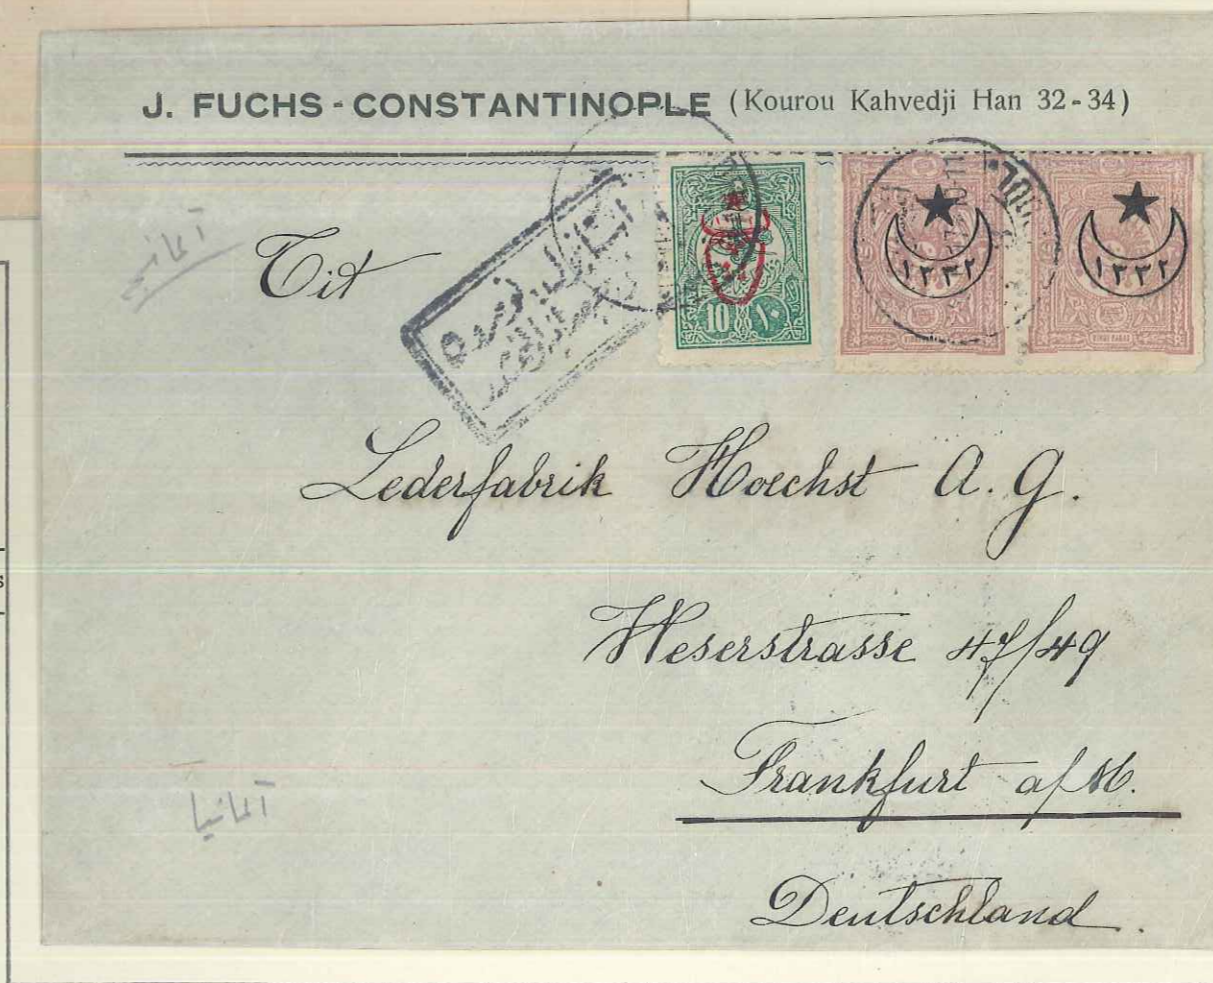 J. FUCHS - CONSTANTINOPLE (Kourou Kahvedji Han 32-34)
المانيا
Tit
10 ١٠
١٣٣٢
١٣٣٢
Lederfabrik Hoechst A. G.
Weserstrasse 47/49
Frankfurt a/M.
المانيا
Deutschland.